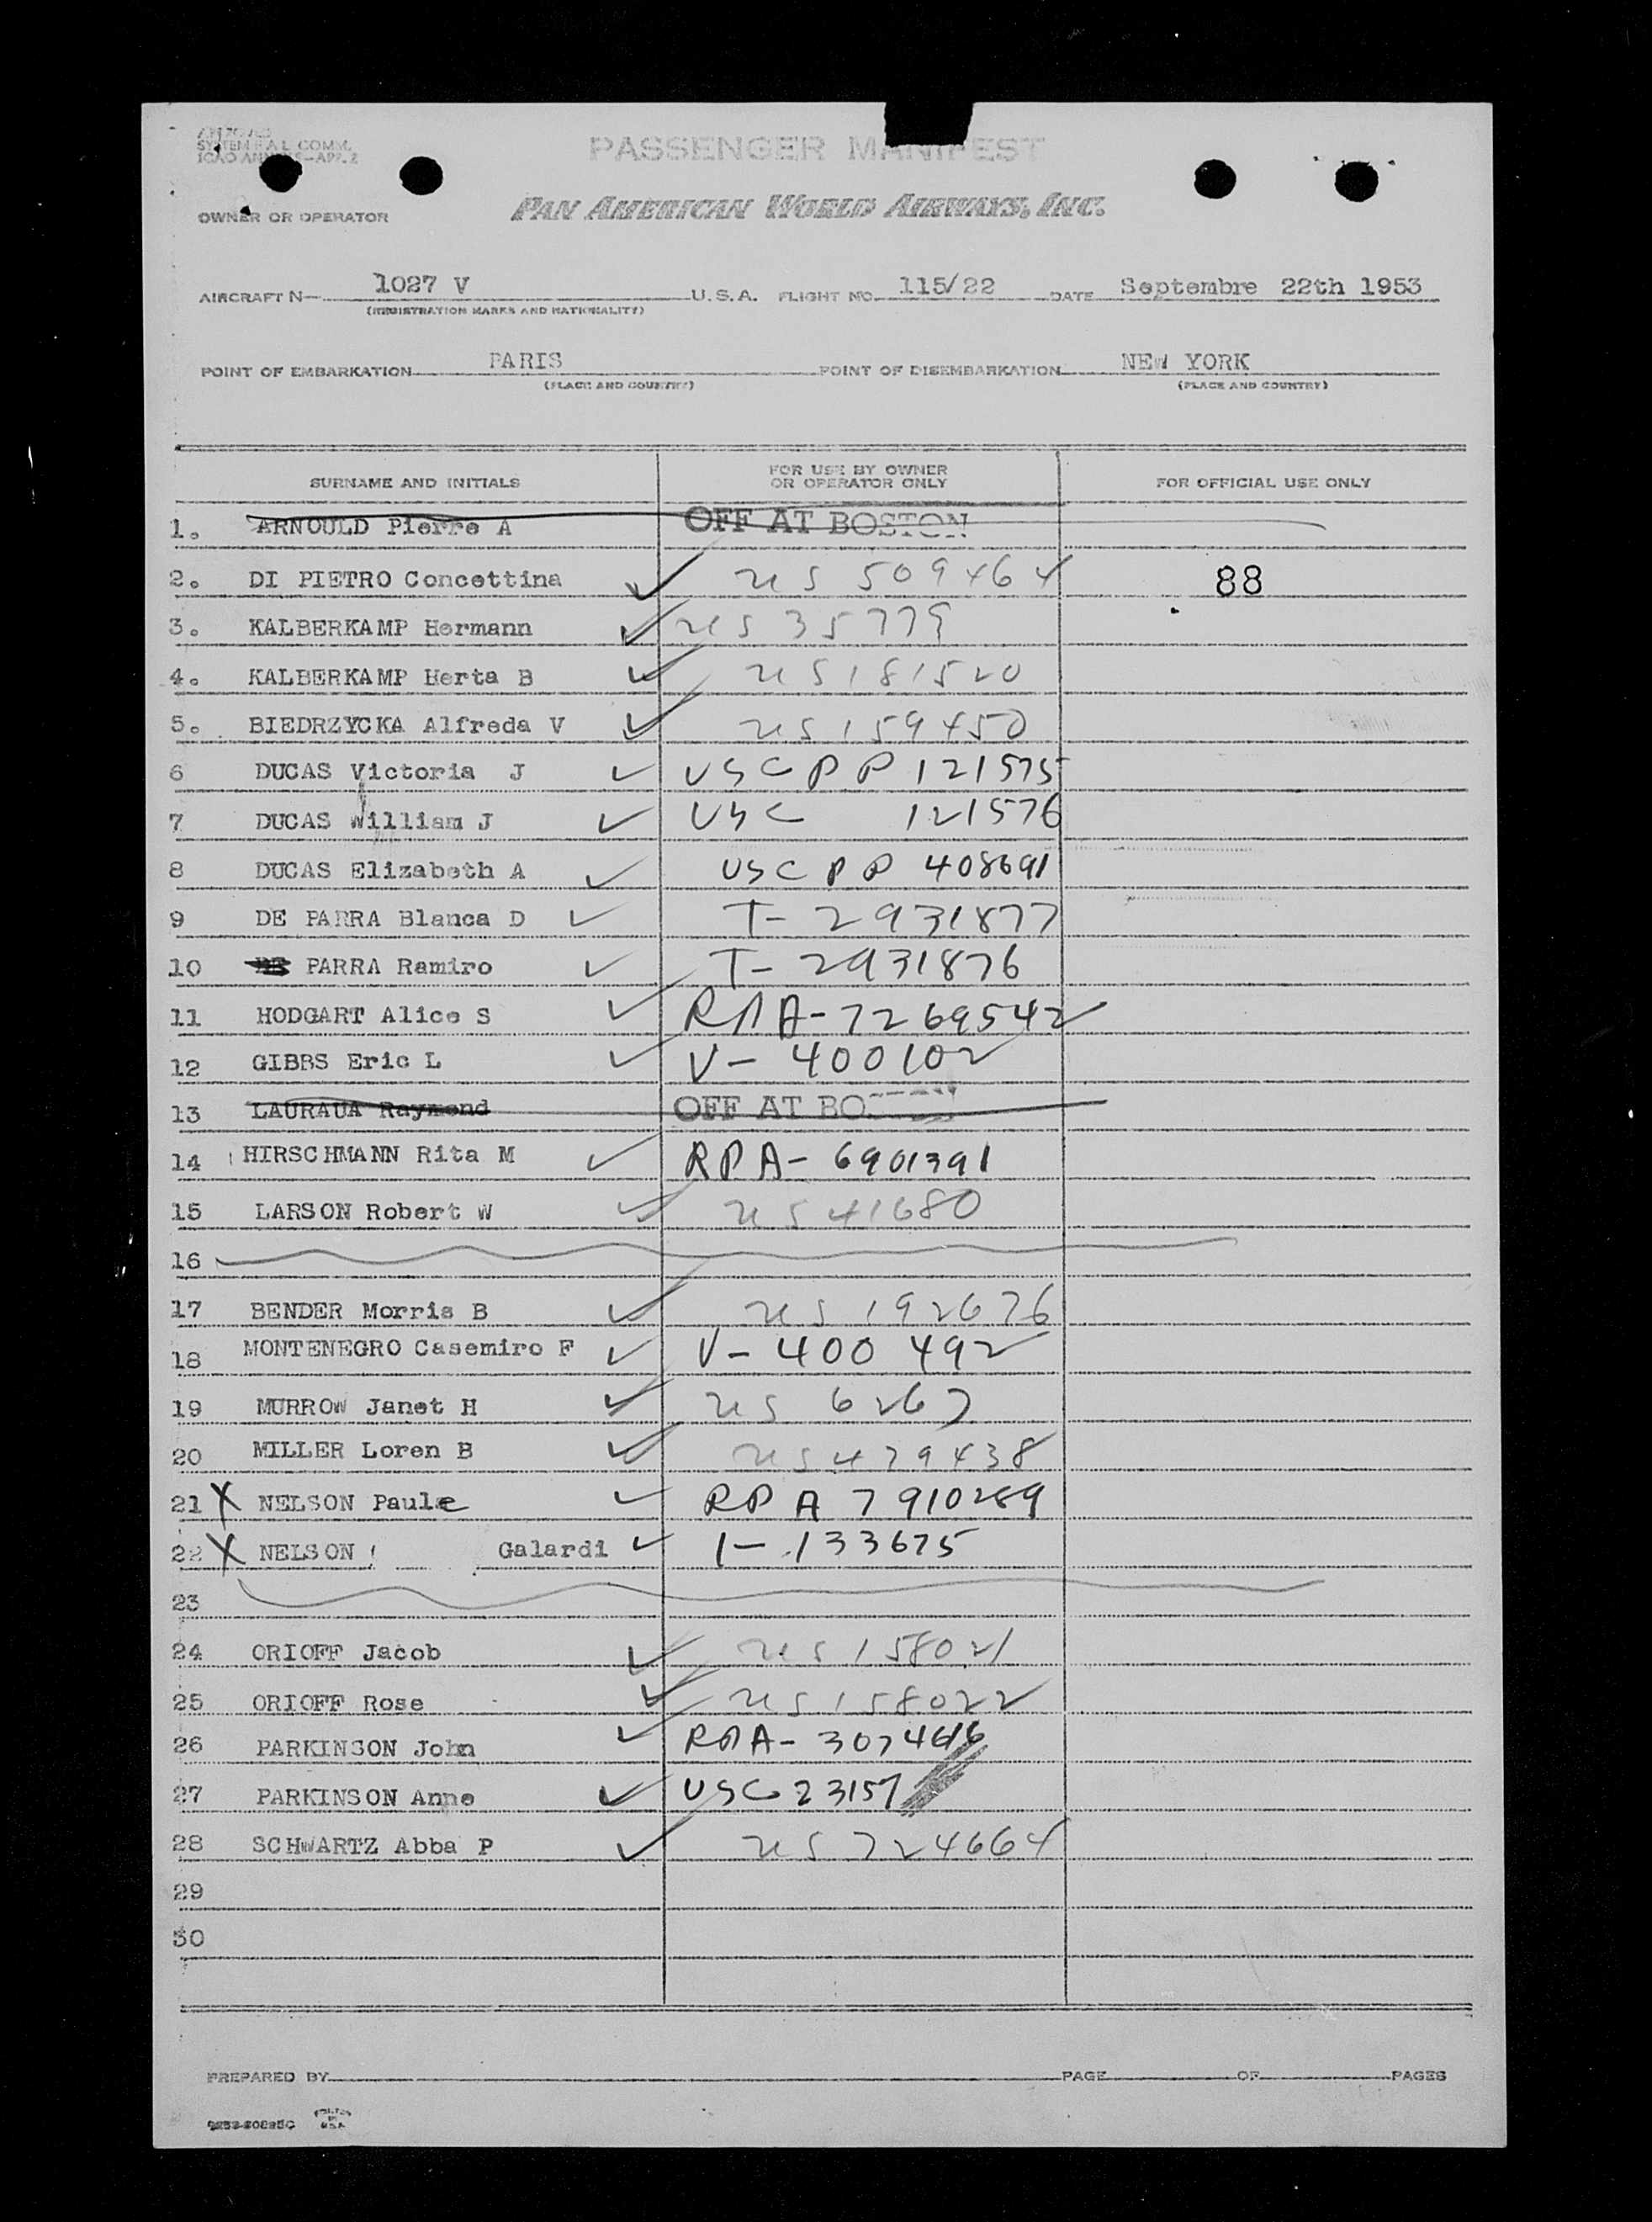 PASSENGER MANIFEST
OWNER OR OPERATOR PAN AMERICAN WORLD AIRWAYS, INC.
AIRCRAFT N— 1027 V U.S.A. FLIGHT NO. 115/22 DATE Septembre 22th 1953
(REGISTRATION MARKS AND NATIONALITY)
POINT OF EMBARKATION PARIS POINT OF DISEMBARKATION NEW YORK
(PLACE AND COUNTRY) (PLACE AND COUNTRY)
SURNAME AND INITIALS FOR USE BY OWNER OR OPERATOR ONLY FOR OFFICIAL USE ONLY
1. ARNOULD Pierre A OFF AT BOSTON
2. DI PIETRO Concettina US 509464 88
3. KALBERKAMP Hermann US 35779
4. KALBERKAMP Herta B US 181520
5. BIEDRZYCKA Alfreda V US 159450
6 DUCAS Victoria J USC PP 121575
7 DUCAS William J USC 121576
8 DUCAS Elizabeth A USC PP 408691
9 DE PARRA Blanca D T- 2931877
10 PARRA Ramiro T- 2931876
11 HODGART Alice S RPA-7269542
12 GIBBS Eric L V- 400102
13 LAURAUA Raymond OFF AT
14 HIRSCHMANN Rita M RPA- 6901391
15 LARSON Robert W US 41680
16
17 BENDER Morris B US 192676
18 MONTENEGRO Casemiro F V- 400 492
19 MURROW Janet H US 6267
20 MILLER Loren B US 479438
21 X NELSON Paule RPA 7910289
22 X NELSON Galardi 1- 133675
23
24 ORIOFF Jacob US 158021
25 ORIOFF Rose US 158022
26 PARKINSON John RPA- 3074616
27 PARKINSON Anne USC 23157
28 SCHWARTZ Abba P US 724664
29
30
PREPARED BY PAGE OF PAGES